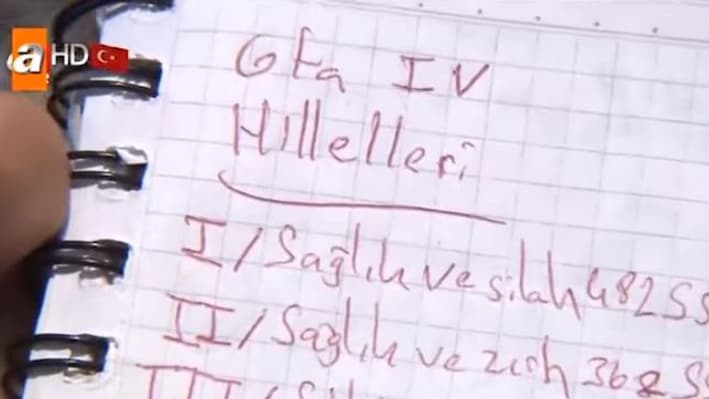 a HD
GTA IV
Hıllelleri
I/Sağlık ve silah 482 55
II/Sağlık ve zırh 362 5
III/